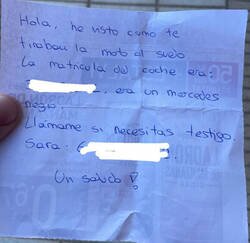 Hola, he visto como te
tiraban la moto al suelo
La matricula del coche era:
, era un mercedes
negro.
Llámame si necesitas testigo.
Sara: 6
Un saludo!